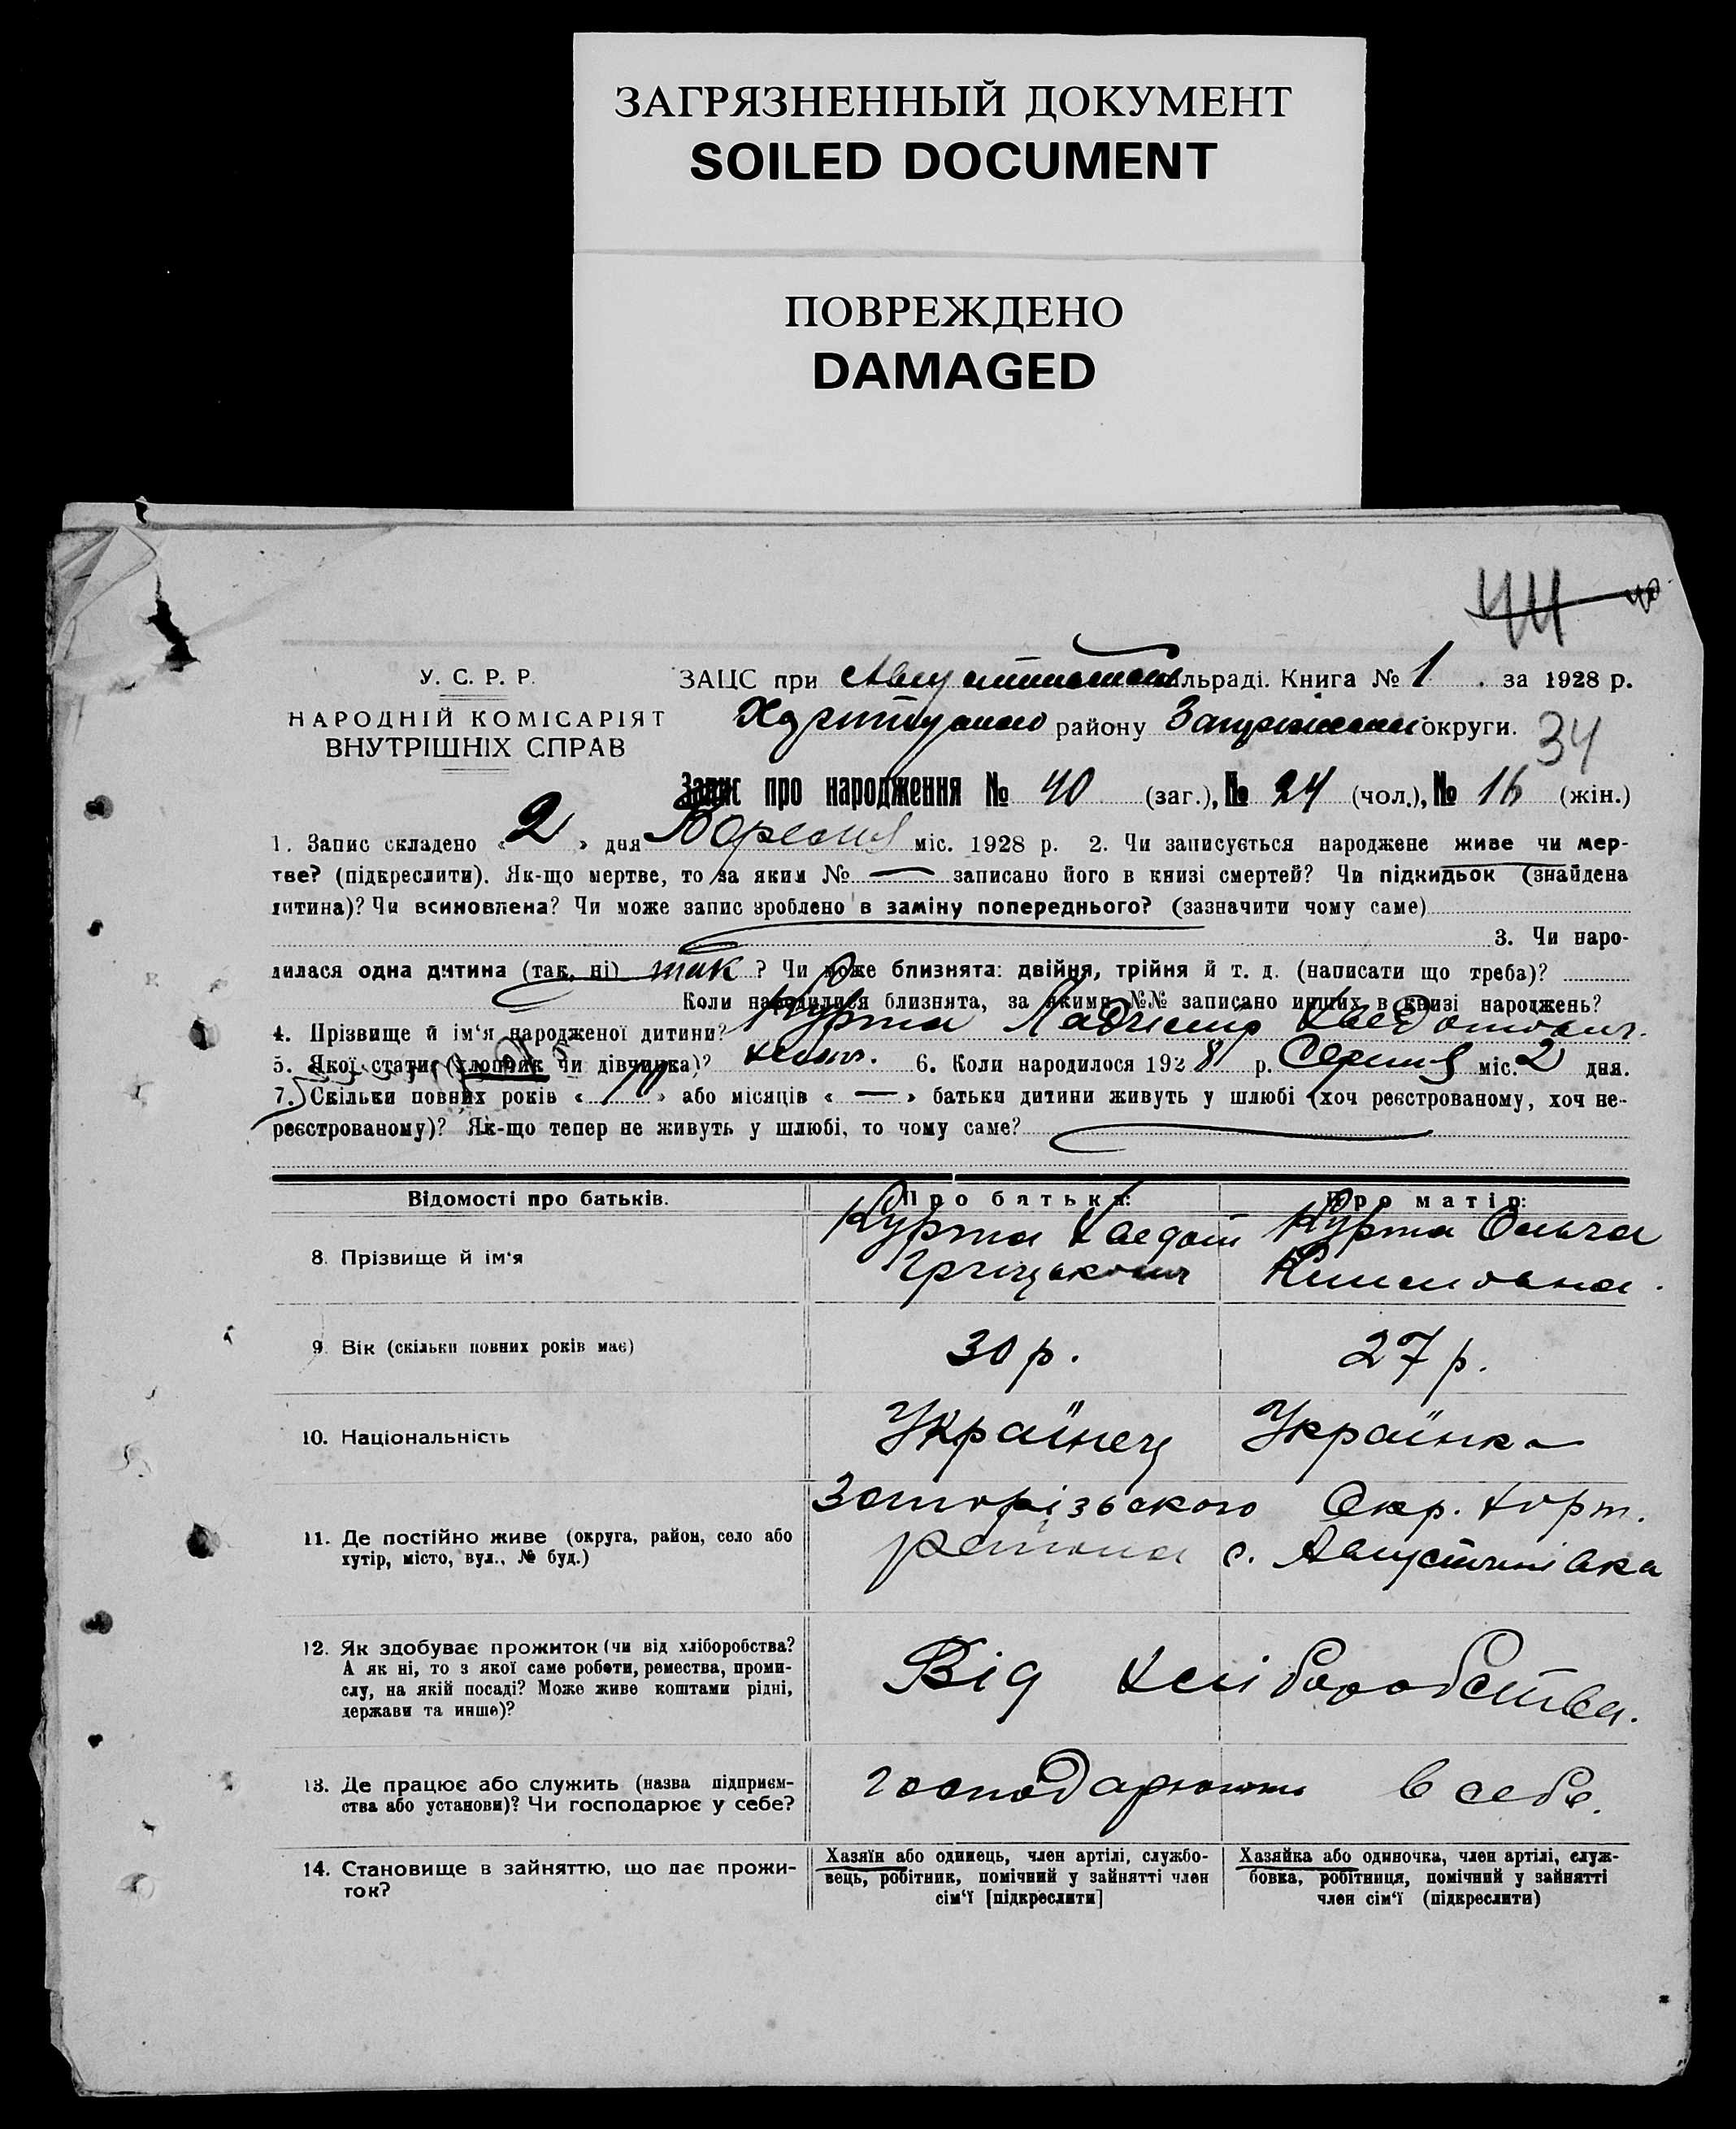 ЗАГРЯЗНЕННЫЙ ДОКУМЕНТ
SOILED DOCUMENT
ПОВРЕЖДЕНО
DAMAGED
44
У. С. Р. Р.
ЗАЦС при льраді. Книга № 1 за 1928 р.
НАРОДНІЙ КОМІСАРІЯТ
ВНУТРІШНІХ СПРАВ
району округи.
34
Запис про народження № 40 (заг.), № 24 (чол.), № 16 (жін.)
1. Запис складено « 2 » дня Вересня міс. 1928 р. 2. Чи записується народжене живе чи мер-
тве? (підкреслити). Як-що мертве, то за яким № — записано його в книзі смертей? Чи підкидьок (знайдена
дитина)? Чи всиновлена? Чи може запис зроблено в заміну попереднього? (зазначити чому саме)
3. Чи наро-
дилася одна дитина (так, ні) так ? Чи може близнята: двійня, трійня й т. д. (написати що треба)?
Коли народилися близнята, за якими №№ записано инших в книзі народжень?
4. Прізвище й ім‘я народженої дитини? Курта
5. Якої стати (хлопчик чи дівчинка)? 6. Коли народилося 1928 р. Серпня міс. 2 дня.
7. Скільки повних років « 10 » або місяців « — » батьки дитини живуть у шлюбі (хоч реєстрованому, хоч не-
реєстрованому)? Як-що тепер не живуть у шлюбі, то чому саме?
Відомості про батьків. Про батька: Про матір:
8. Прізвище й ім‘я Курта Хведот Курта Ольга
Грицькович
9. Вік (скільки повних років має) 30 р. 27 р.
10. Національність Українець Українка
Запорізького Окр. Хорт.
11. Де постійно живе (округа, район, село або
хутір, місто, вул., № буд.) района с. Августинівка
12. Як здобуває прожиток (чи від хліборобства?
А як ні, то з якої саме роботи, ремества, проми-
слу, на якій посаді? Може живе коштами рідні,
держави та инше)?
Від хліборобства.
13. Де працює або служить (назва підприєм-
ства або установи)? Чи господарює у себе?
господарюють в себе.
14. Становище в зайняттю, що дає прожи-
ток?
Хазяїн або одинець, член артілі, службо-
вець, робітник, помічний у зайнятті член
сім‘ї [підкреслити]
Хазяйка або одиночка, член артілі, служ-
бовка, робітниця, помічний у зайнятті
член сім‘ї (підкреслити)